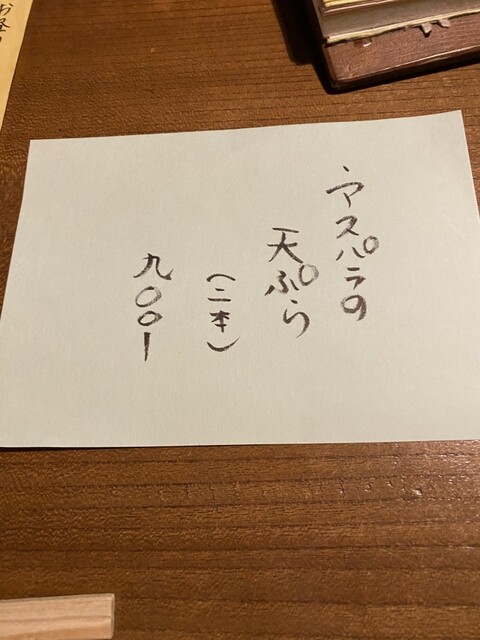 アスパラの
天ぷら
(二本)
九〇〇ー